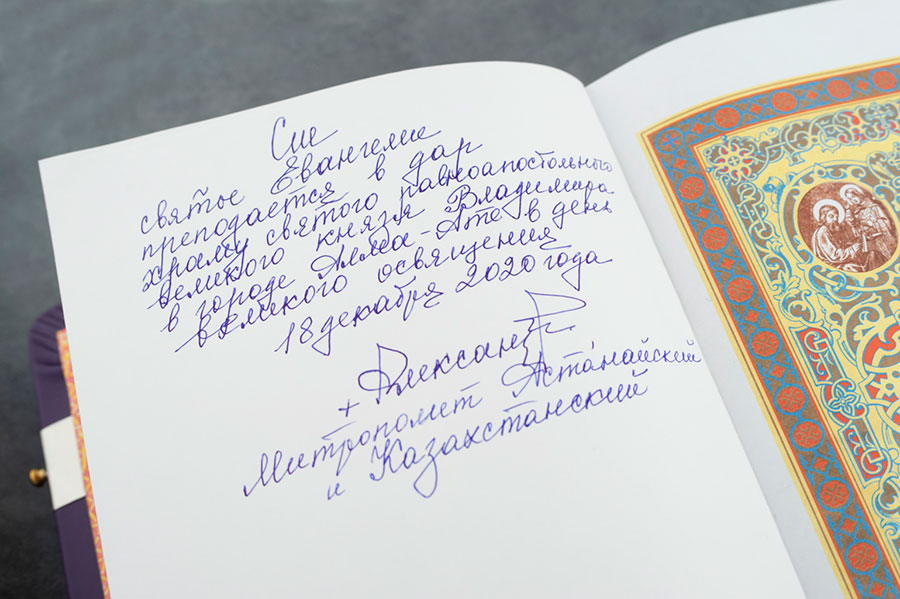 Сие
святое Евангелие
преподается в дар
храму святого равноапостольного
великого князя Владимира
в городе Алма-Ате в день
великого освящения
18 декабря 2020 года
+ Александр
Митрополит Астанайский
и Казахстанский